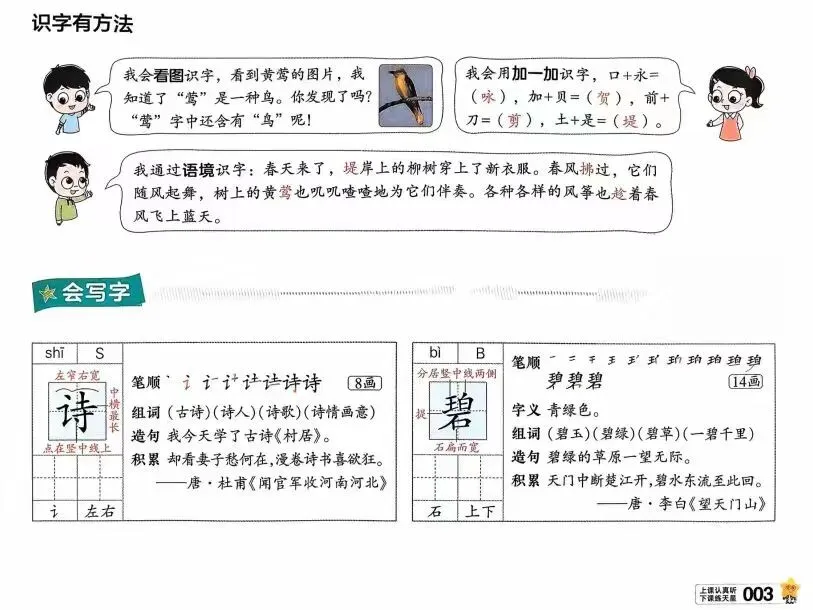 识字有方法
我会看图识字，看到黄莺的图片，我
知道了“莺”是一种鸟。你发现了吗？
“莺”字中还含有“鸟”呢！
我会用加一加识字，口+永=
（咏），加+贝=（贺），前+
刀=（剪），土+是=（堤）。
我通过语境识字：春天来了，堤岸上的柳树穿上了新衣服。春风拂过，它们
随风起舞，树上的黄莺也叽叽喳喳地为它们伴奏。各种各样的风筝也趁着春
风飞上蓝天。
会写字
shī S
左窄右宽
诗
中横最长
点在竖中线上
讠 左右
笔顺
8画
组词 (古诗)(诗人)(诗歌)(诗情画意)
造句 我今天学了古诗《村居》。
积累 却看妻子愁何在,漫卷诗书喜欲狂。
——唐·杜甫《闻官军收河南河北》
bì B
分居竖中线两侧
提
碧
石扁而宽
石 上下
笔顺
14画
字义 青绿色。
组词 (碧玉)(碧绿)(碧草)(一碧千里)
造句 碧绿的草原一望无际。
积累 天门中断楚江开,碧水东流至此回。
——唐·李白《望天门山》
上课认真听
下课练天星
003